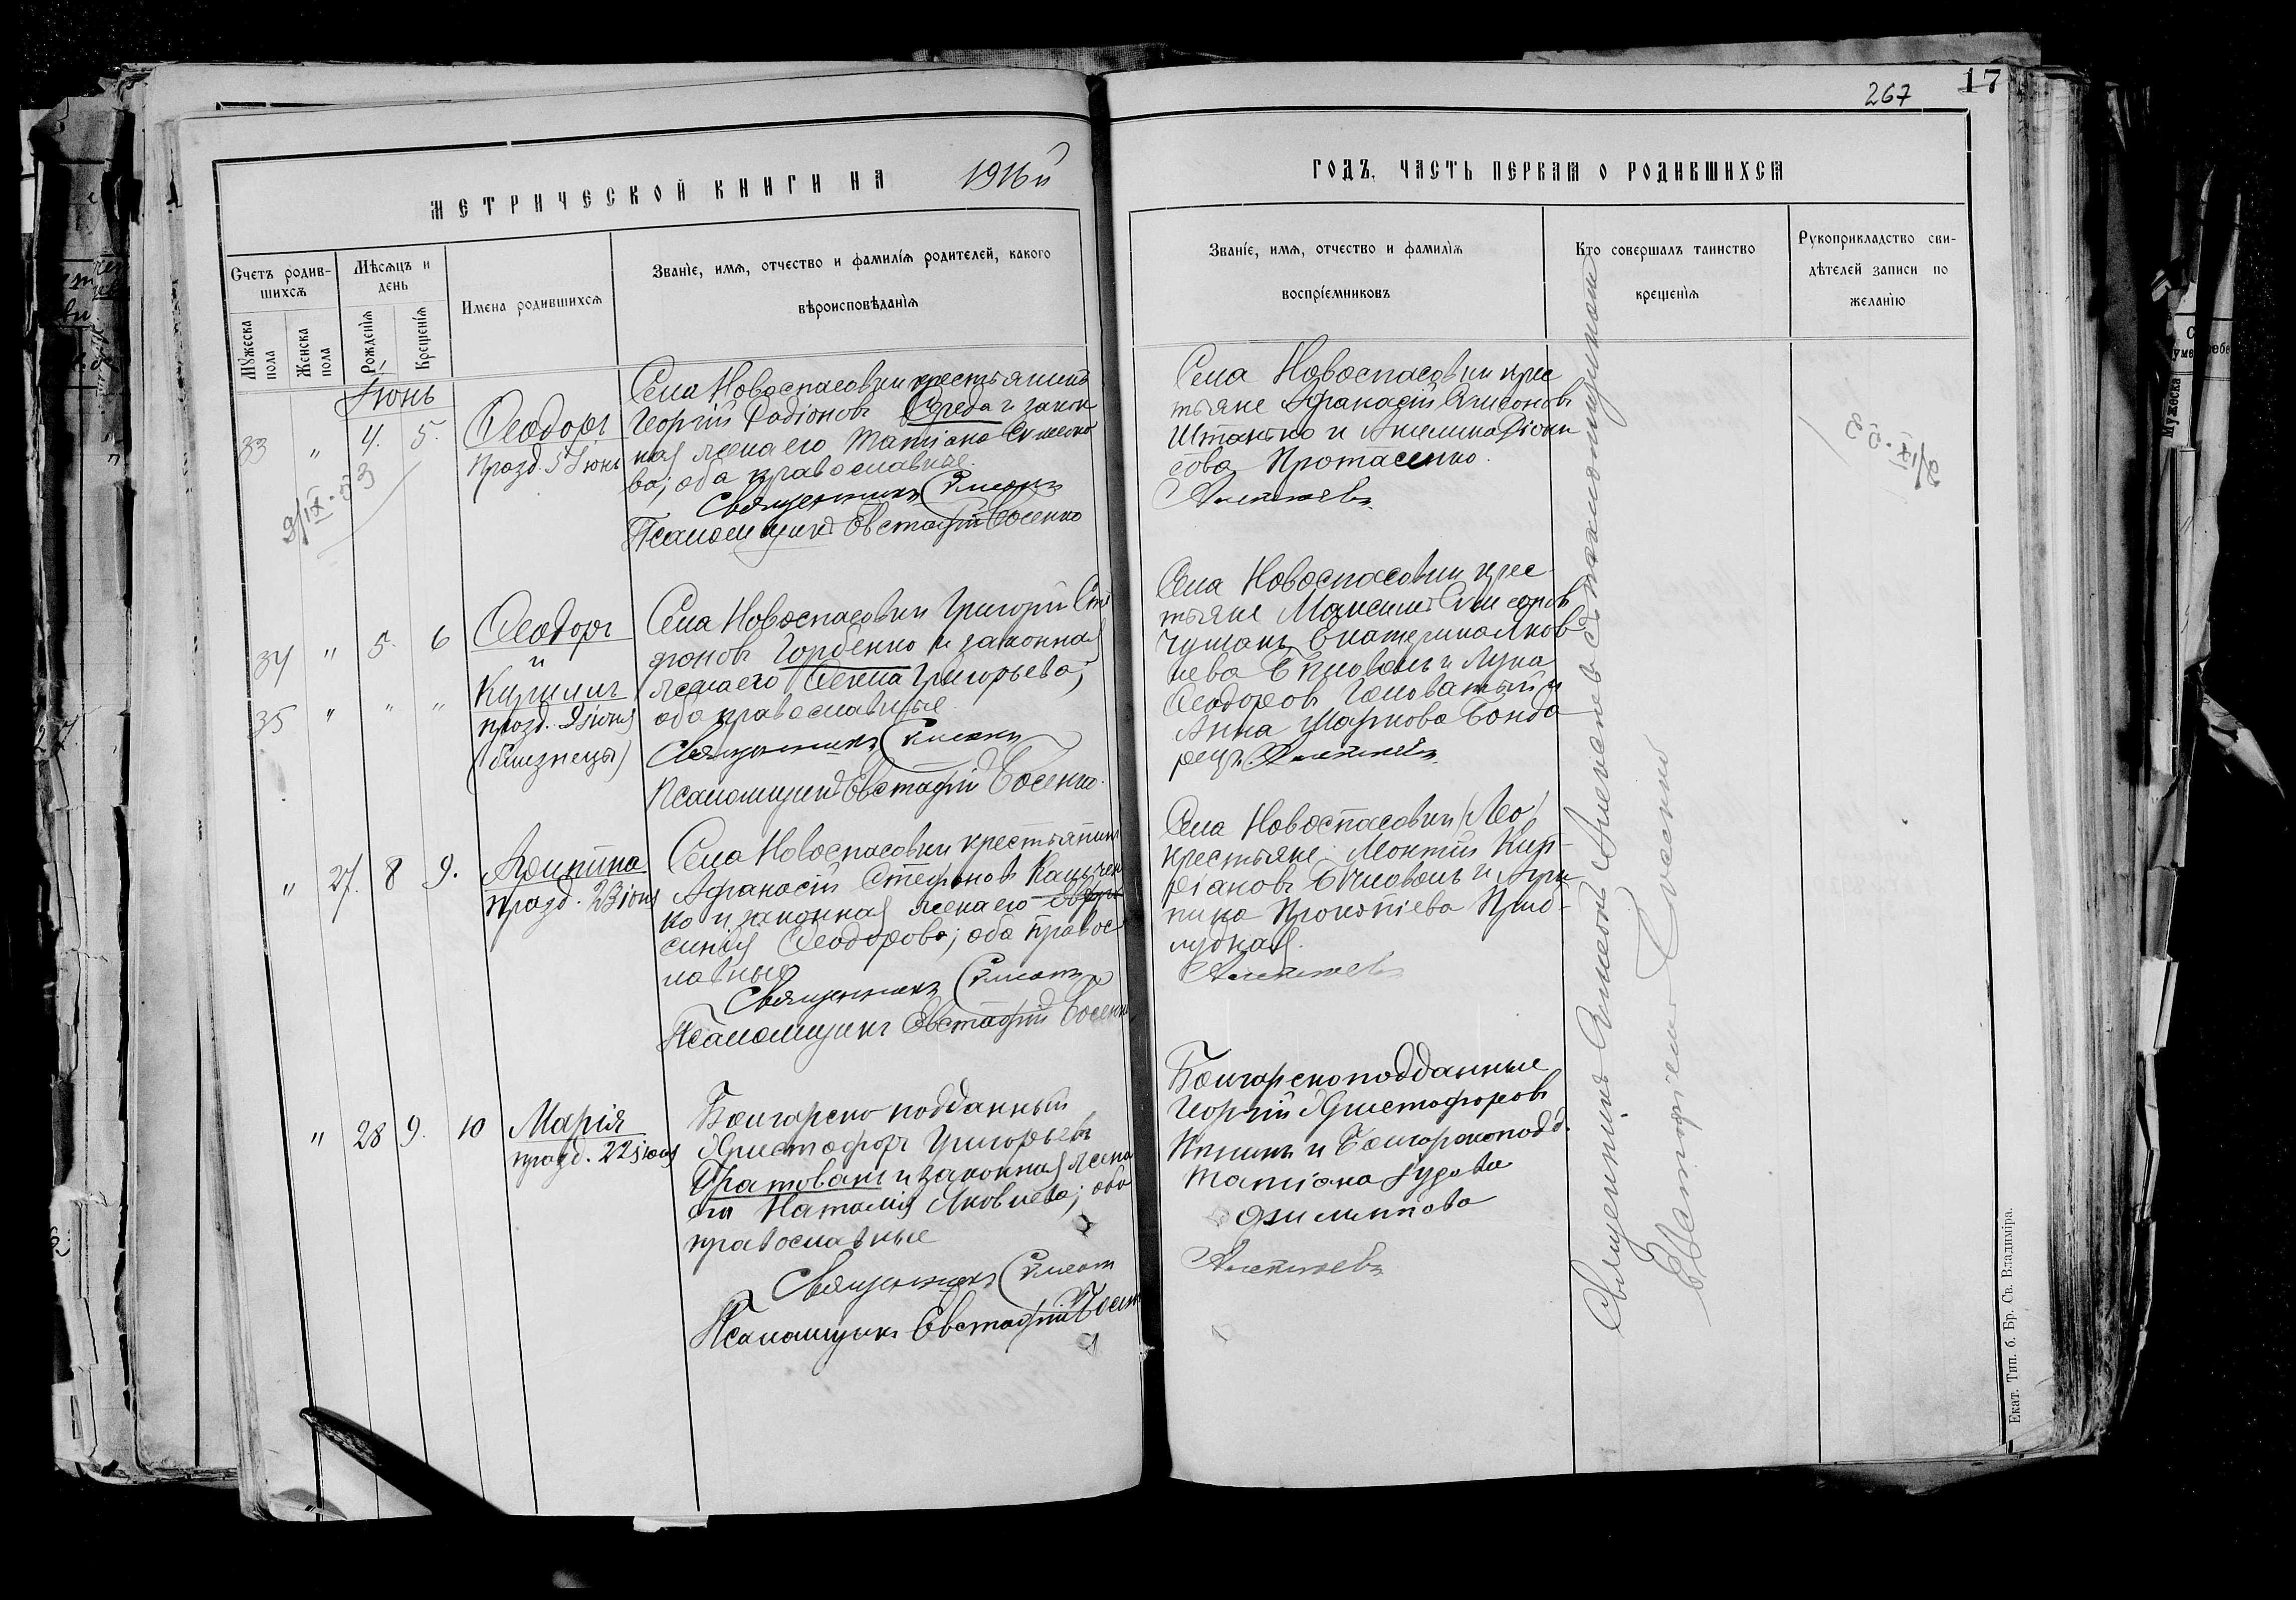 267 17
МЕТРИЧЕСКОЙ КНИГИ НА 1916й
ГОДЪ, ЧАСТЬ ПЕРВАЯ О РОДИВШИХСЯ
Счетъ родив-
шихся
Мужеска
пола
Женска
пола
Мѣсяцъ и
день
Рожденія
Крещенія
Имена родившихся
Званіе, имя, отчество и фамилія родителей, какого
вѣроисповѣданія
Званіе, имя, отчество и фамилія
воспріемниковъ
Кто совершалъ таинство
крещенія
Рукоприкладство сви-
дѣтелей записи по
желанію
Іюнь
33 " 4. 5.
Ѳеодоръ
празд. 5 Іюнь
2/IX.53
Села Новоспасовки крестьянинъ
Георгій Родіоновъ Середа и закон
ная жена его Татіана
ва; оба православные.
Священникъ Симеонъ
Псаломщикъ Евстафій Косенко
Села Новоспасовки крес
тьяне Афанасій
Штанько и Акилина Діони
сова Протасенко.
Алексѣевъ
34 " 5. 6
35 " " "
Ѳеодоръ
и
Кириллъ
празд. 9 іюня
(близнецы)
Села Новоспасовки Григорій Сте
фановъ Горбенко и законная
жена его Елена Григорьева;
оба православные.
Священникъ Симеонъ
Псаломщикъ Евстафій Косенко.
Села Новоспасовки крес
тьяне Максимъ
Чумакъ, Екатерина Яков
лева Бѣловолъ и Лука
Ѳеодоровъ Головатый и
Анна Маркова Бонда
рецъ Алексѣевъ
" 27. 8 9.
Акипина
празд. 23 іюня
Села Новоспасовки крестьянинъ
Афанасій Стефановъ Кальчен
ко и законная жена его Евфро
синія Ѳеодорова; оба правос
лавные
Священникъ Симеонъ
Псаломщикъ Евстафій Косенко
Села Новоспасовки (Лео)
крестьяне: Леонтій Кип-
ріановъ Бѣловолъ и Агри
пина Прокопіева Приб-
лудная.
Алексѣевъ
" 28 9. 10
Марія
празд. 22 іюля
Болгарско подданный
Христофоръ Григорьевъ
и законная жена
его Наталія Яковлева; оба
православные
Священникъ Симеон
Псаломщикъ Евстафій Косен
Болгарскоподданные
Георгій Христофоровъ
и Болгарскоподд.
Татіана
Филиппова
Алексѣевъ
Священникъ Симеонъ Алексѣевъ съ псаломщикомъ
Евстафіемъ Косенко
2/IX.53
Екат. Тип. б. Бр. Св. Владиміра.
Мужеска